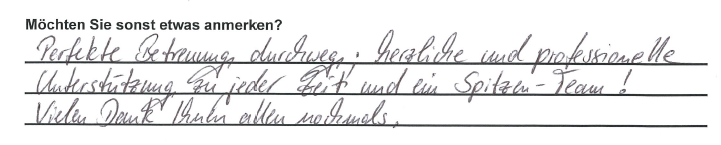 Möchten Sie sonst etwas anmerken?
Perfekte Betreuung durchweg; herzliche und professionelle
Unterstützung zu jeder Zeit und ein Spitzen-Team!
Vielen Dank Ihnen allen nochmals.